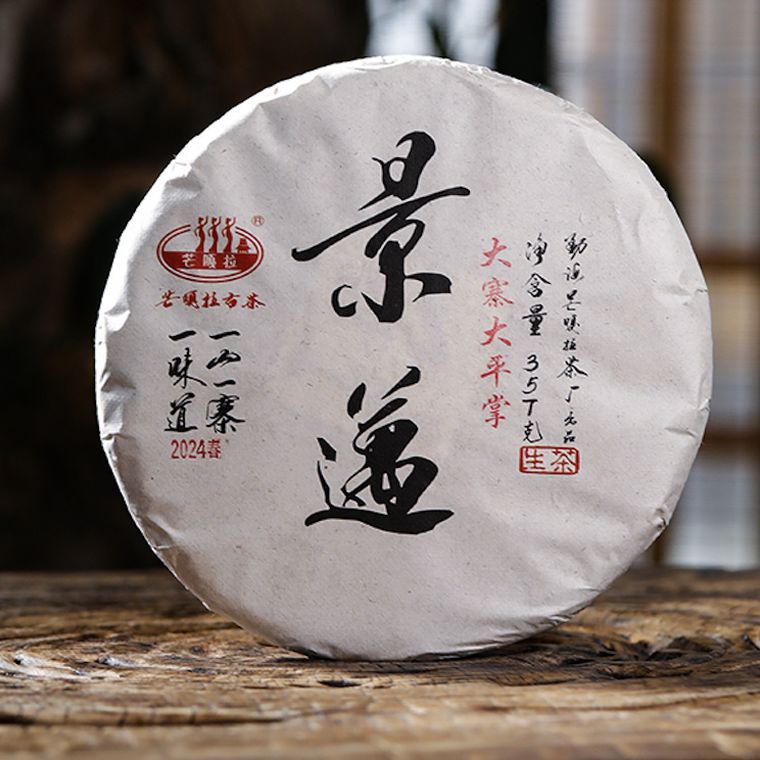 景邁
大寨大平掌
净含量 357克
勐海芒嘎拉茶厂出品
生茶
芒嘎拉
®
芒嘎拉古茶
一山一寨
一味道
2024春